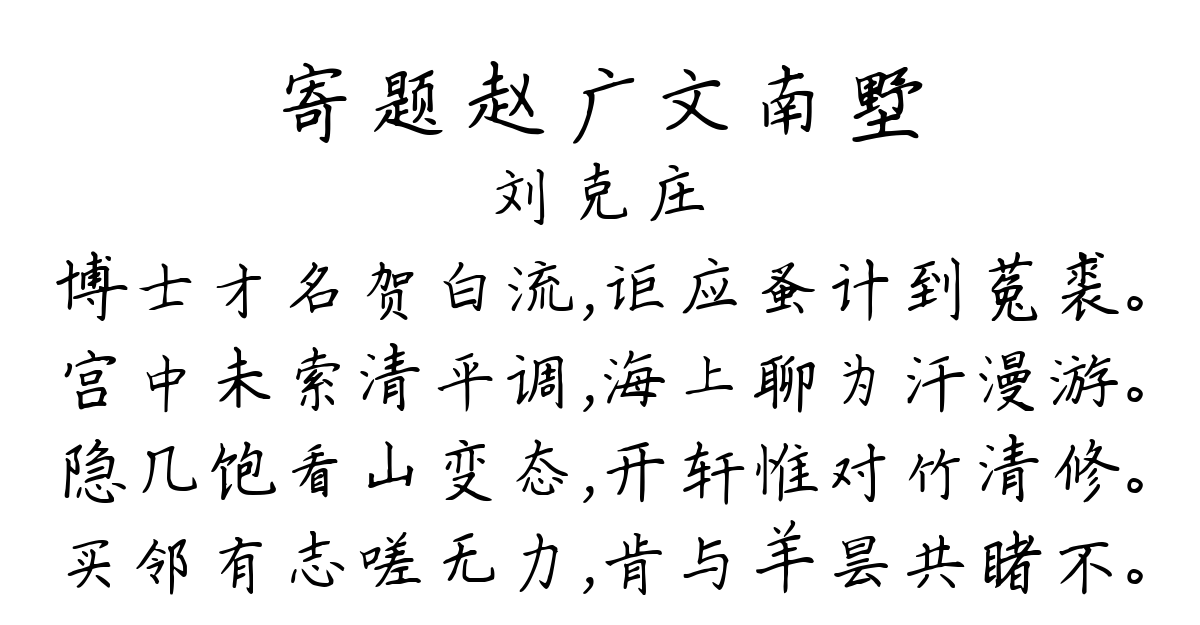 寄题赵广文南墅
刘克庄
博士才名贺白流,讵应蚤计到菟裘。
宫中未索清平调,海上聊为汗漫游。
隐几饱看山变态,开轩惟对竹清修。
买邻有志嗟无力,肯与羊昙共睹不。